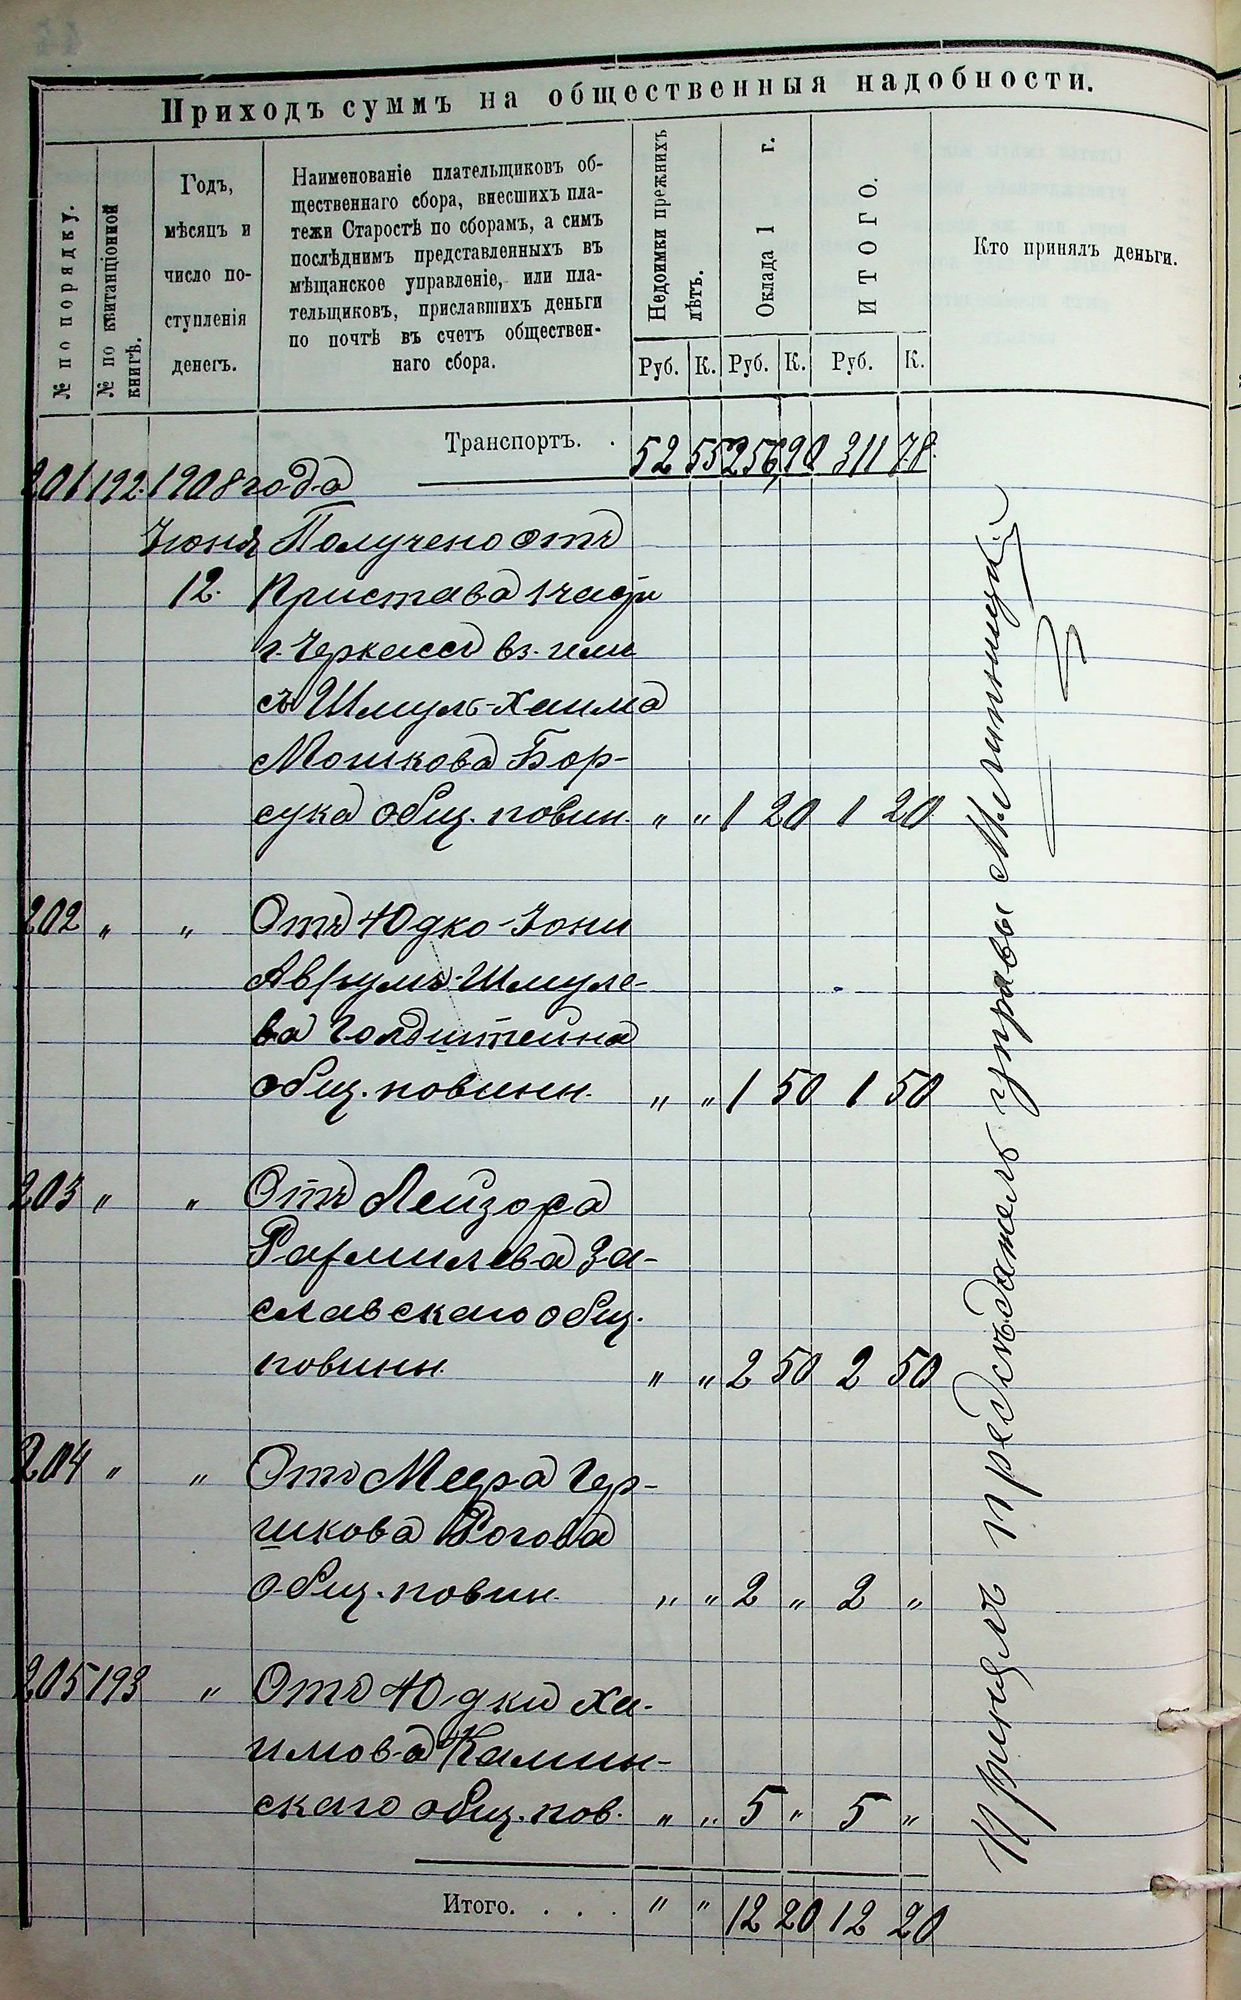 Приходъ суммъ на общественныя надобности.
№ по порядку.
№ по квитанціонной
книгѣ.
Годъ,
мѣсяцъ и
число по-
ступленія
денегъ.
Наименованіе плательщиковъ об-
щественнаго сбора, внесшихъ пла-
тежи Старостѣ по сборамъ, а симъ
послѣднимъ представленныхъ въ
мѣщанское управленіе, или пла-
тельщиковъ, приславшихъ деньги
по почтѣ въ счетъ обществен-
наго сбора.
Недоимки прежнихъ
лѣтъ.
Оклада 1 г.
ИТОГО.
Кто принялъ деньги.
Руб. К. Руб. К. Руб. К.
Транспортъ. . 52 55 256 90 311 78.
201 192. 1908 года
Июня Получено отъ
12. Пристава 1 части
г. Черкассъ вз. ими
съ Шмуль-Хаима
Мошкова Бор-
сука общ. повин. " " 1 20 1 20
202 " " Отъ Юдко-Іони
Аврумъ-Шмуле-
ва Голдштейна
общ. повинн. " " 1 50 1 50
203 " " Отъ Лейзора
Рахмилева За-
славскаго общ.
повинн. " " 2 50 2 50
204 " " Отъ Меера Гер-
шкова Рогова
общ. повин. " " 2 " 2 "
205 193 " Отъ Юдки Ха-
имова Камин-
скаго общ. пов. " " 5 " 5 "
Итого. . . . " " 12 20 12 20
Принялъ предсѣдатель управы